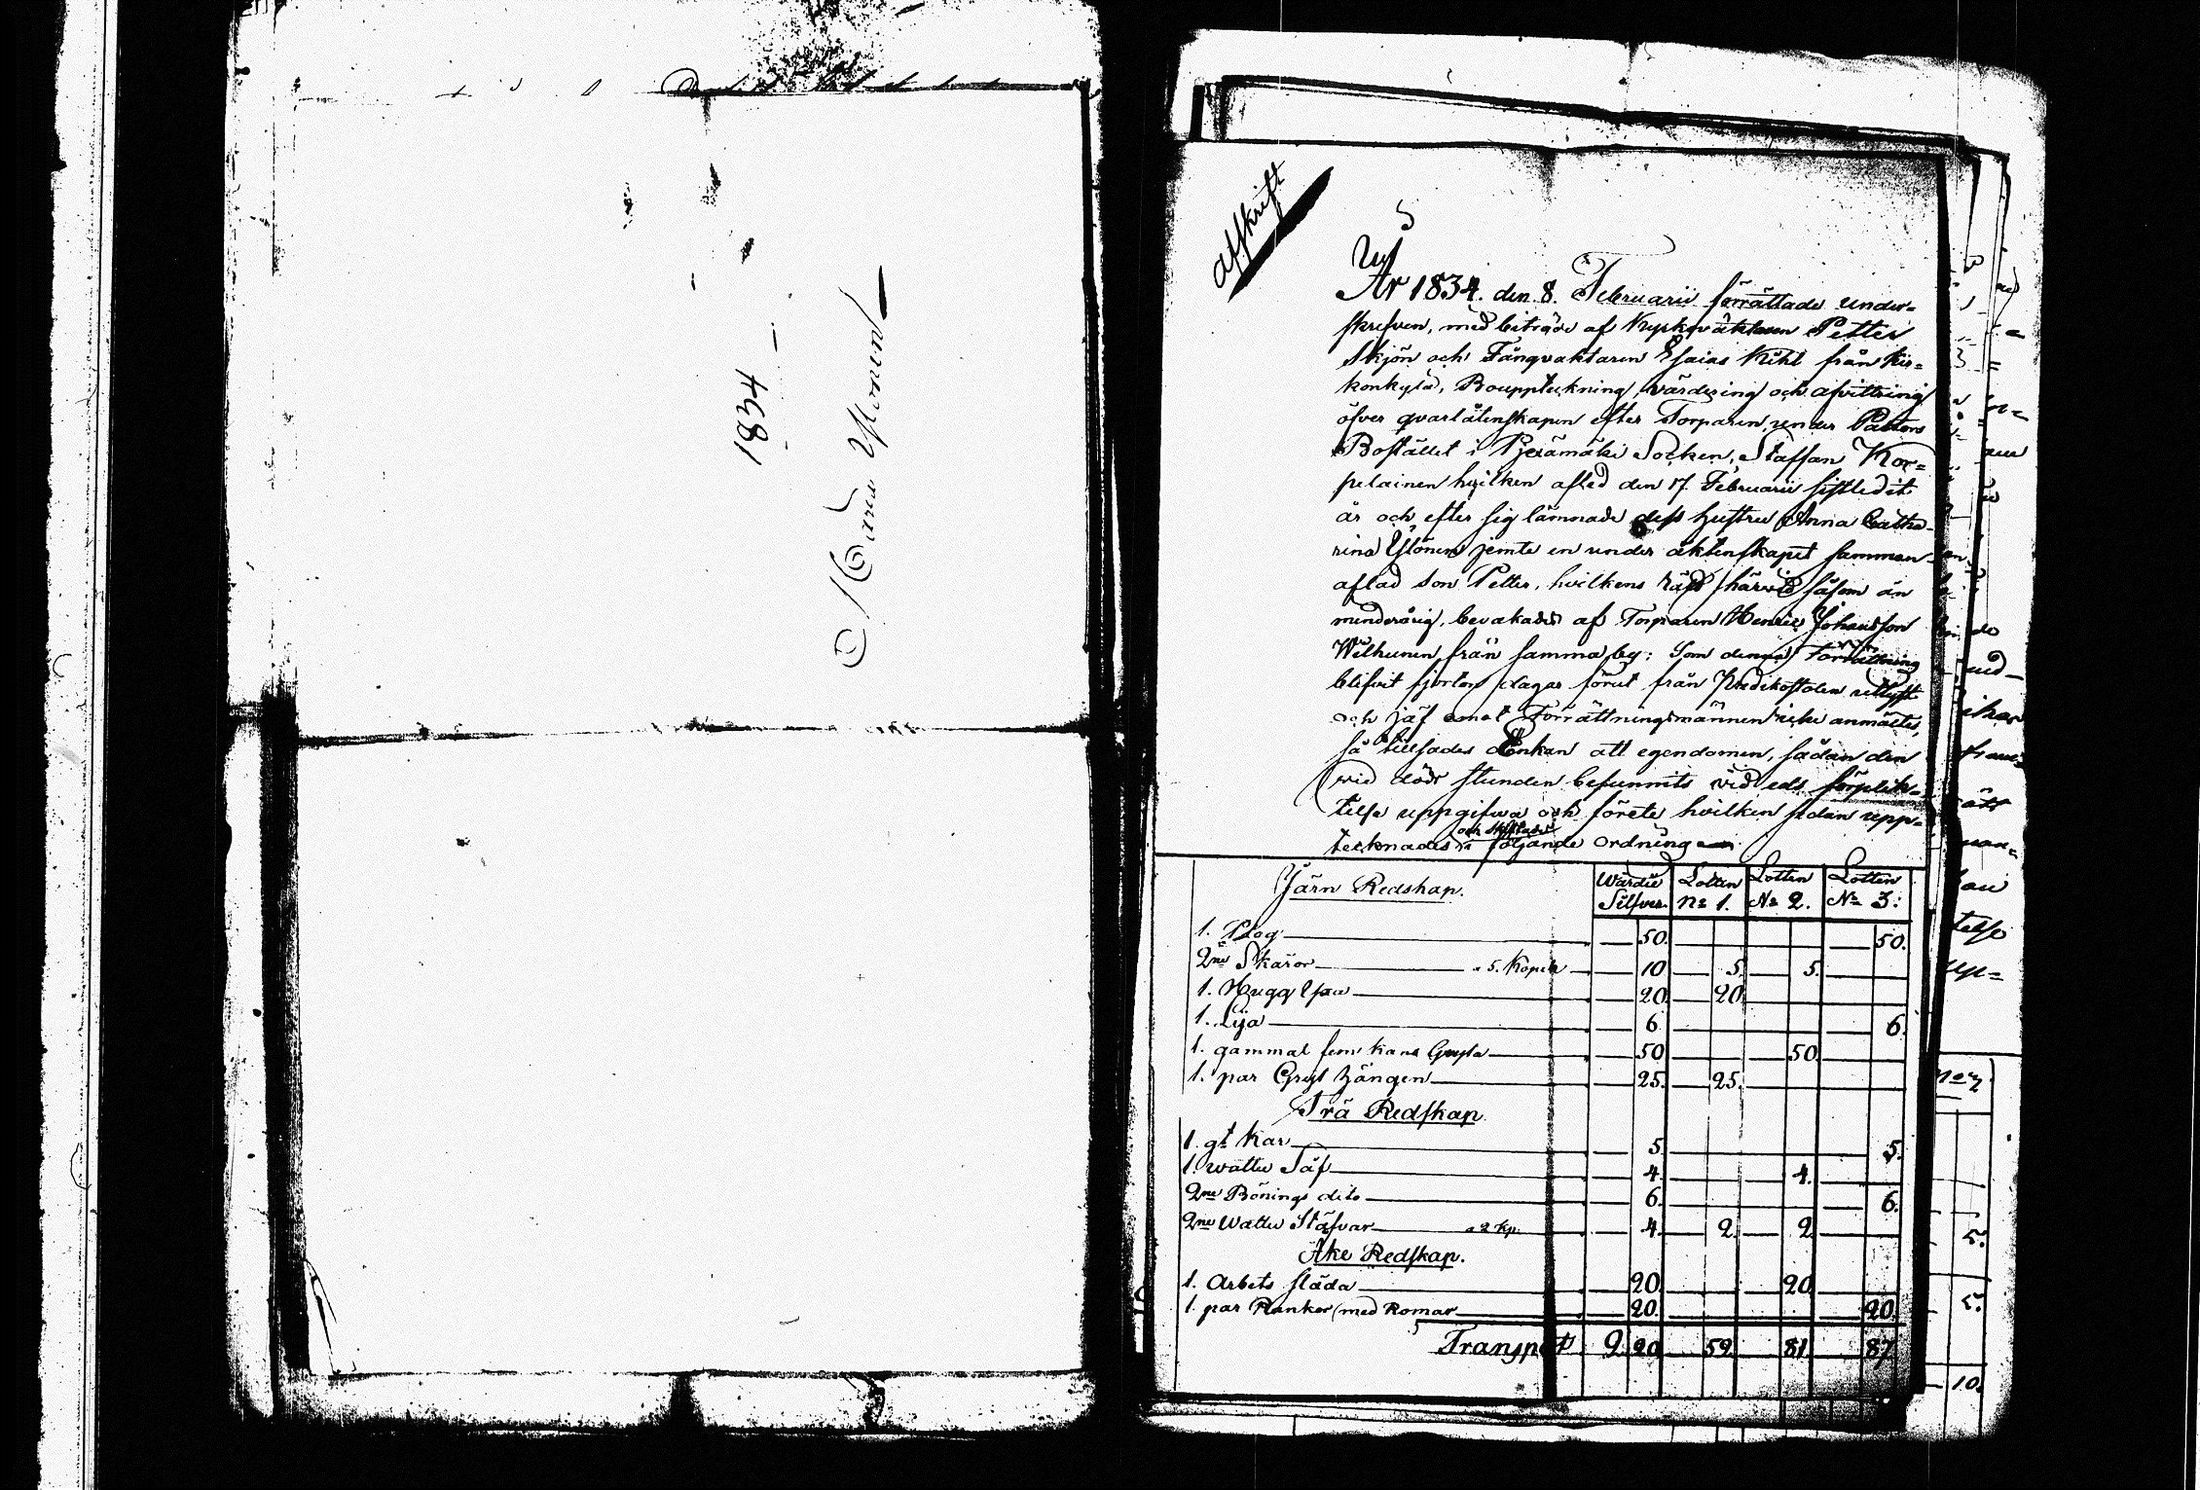 1834
Afskrift
År 1834. den 8. Februarii förrättade under-
skrefven, med biträde af Kyrkoväktaren Petter
Skjön och Fångvaktaren Esaias Kihl från Kir-
konkylä, Bouppteckning, värdering och afvittring
öfver qvarlåtenskapen efter Torparen under Pastors
Bostället i Pjelämäki Socken, Staffan Kor-
pelainen hvilken afled den 17. Februarii sistledit
år och efter sig lämnade dess hustru Anna Catha-
rina Ylönen jemte en under äktenskapet samman-
aflad Son Petter, hvilkens rätt härvid såsom än
minderårig, bevakades af Torparen Henric Johansson
Wilhunen från samma by: Som denna Förrättning
blifvit fjorton dagar förut från Predikostolen utlyst
och jäf emot Förrättningsmännen icke anmältes,
så tillsades Enkan att egendomen, sådan den
vid döds stunden befunnits vid eds förplik-
telse uppgifva och förete hvilken sedan upp-
och skiftades
tecknades i följande ordning
Järn Redskap. Wärdie Silfver. Lotten No 1. Lotten No 2. Lotten No 3:
1. Plog 50. 50.
2ne Skäror a 5. Kopek 10 5. 5.
1. Hugg Yxa 20. 20.
1. Lija 6. 6.
1. gammal fem kans Gryta 50 50.
1. par Gryt hängen 25. 25.
Trä Redskap.
1. gt Kar 5. 5.
1. wattu Så 4. 4.
2ne Bönings dito 6. 6.
2ne Wattu Stäfvor a 2 Kp. 4. 2. 2.
Åke Redskap.
1. Arbets släda 20. 20.
1. par Rankor med Romar 20. 20.
Transport 2 20. 52. 81. 87.